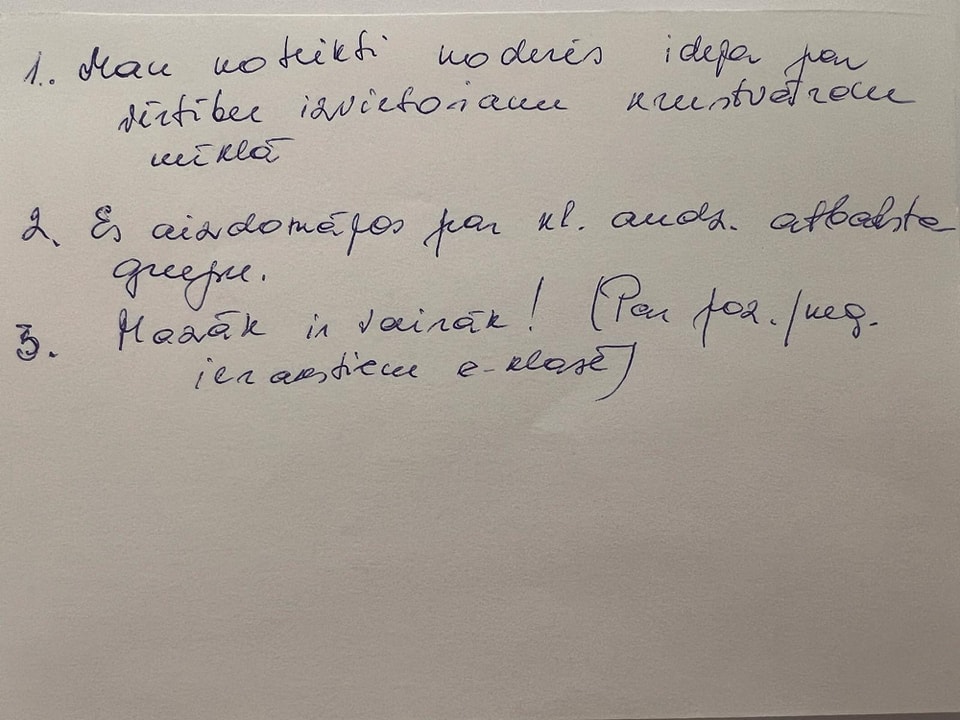 1. Man noteikti noderēs ideja par
vērtību izvietošanu krustvārdu
mīklā
2. Es aizdomājos par kl. audz. atbalsta
grupu.
3. Mazāk ir vairāk! (Par poz./neg.
ierakstiem e-klasē)